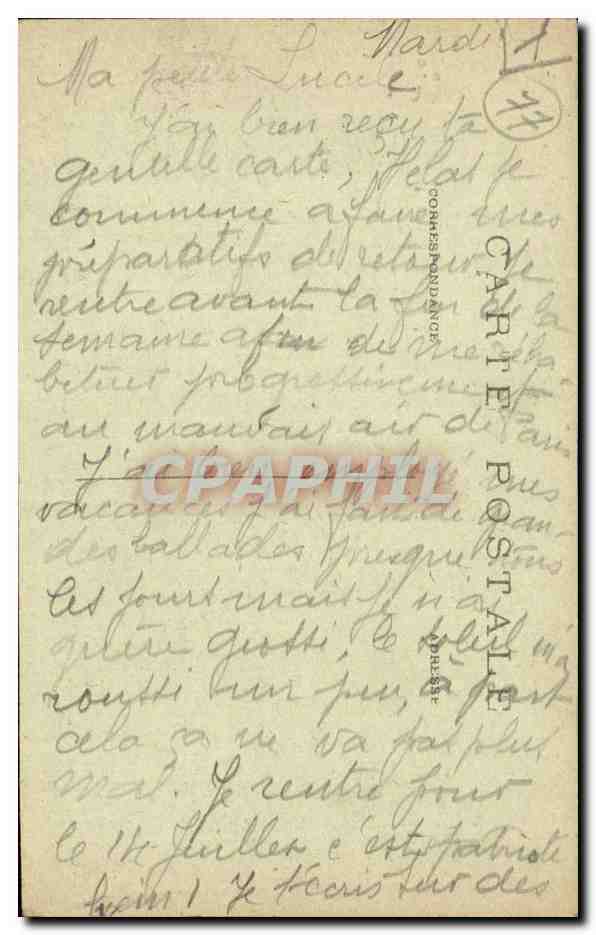 Mardi 1
77
Ma petite Lucile,
J'ai bien reçu ta
gentille carte, Helas je
commence a faire mes
préparatifs de retour. Je
rentre avant la fin de la
semaine afin de me réha
bituer progressivement
au mauvais air de Paris
J'ai bien mes
vacances j'ai fait de gran-
des ballades presque tous
les jours mais je n'ai
guère grossi, le soleil m'a
roussi un peu, à part
cela ça ne va pas plus
mal. Je rentre pour
le 14 Juillet c'est patriote
hein! Je t'écris sur des
CARTE POSTALE
CORRESPONDANCE
ADRESSE
CPAPHIL